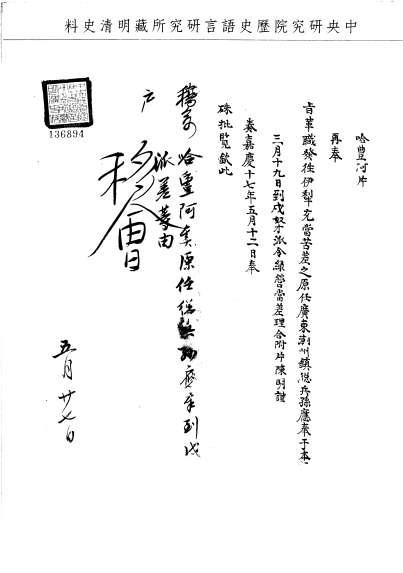 中央研究院歷史語言研究所藏明清史料
哈豐阿片
再奉
旨革職發往伊犁充當苦差之原任廣東潮州鎮總兵孫應奉于本
三月十九日到戍奴才派令綠營當差理合附片陳明謹
奏嘉慶十七年五月十二日奉
硃批覽欽此
哈豐阿奏原任總 到戍
派差等由
移會
五月廿七日
136894